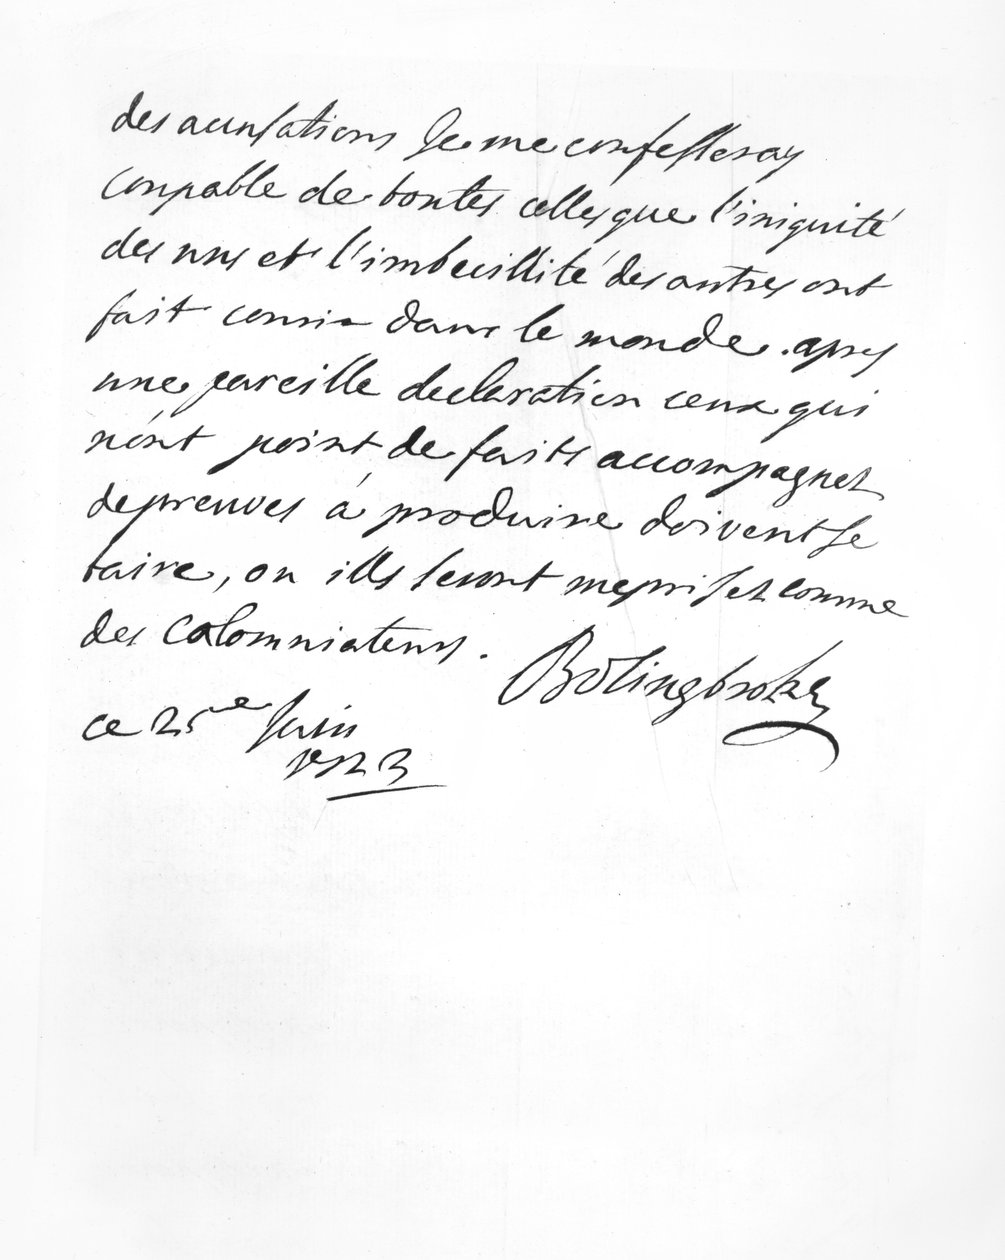 des accusations je me confesseray
coupable de toutes celles que l'iniquité
des uns et l'imbecillité des autres ont
fait courir dans le monde. apres
une pareille declaration ceux qui
n'ont point de faits accompagnez
de preuves à produire doivent se
taire, ou ills seront meprisez comme
des calomniateurs.
Bolingbroke
ce 25me Juin
1723